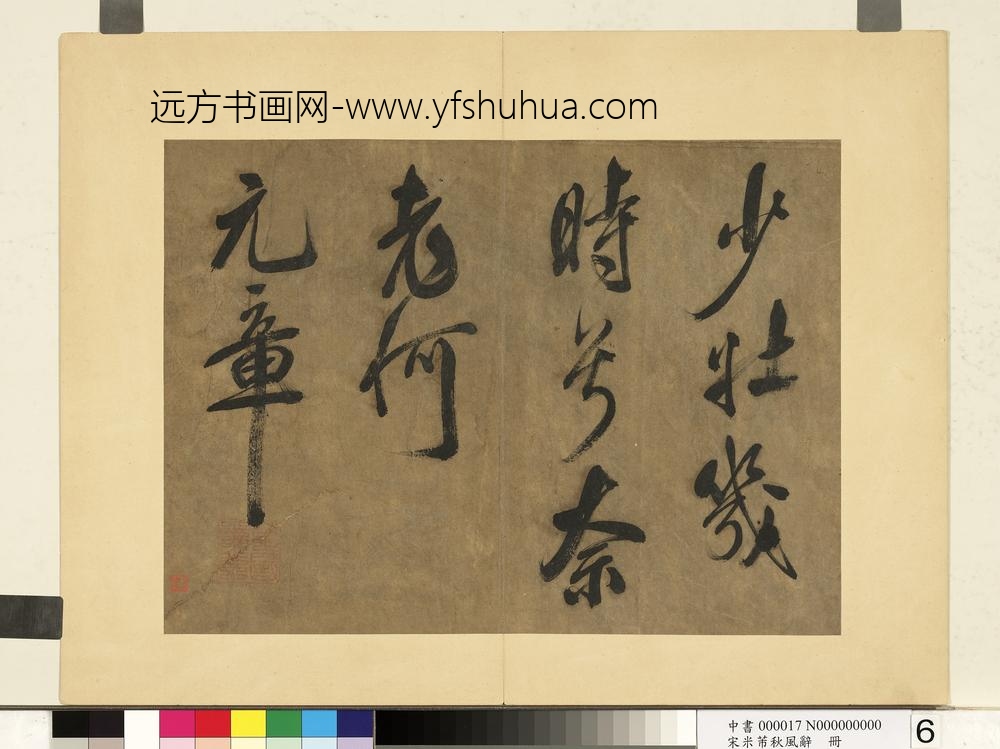 远方书画网-www.yfshuhua.com
少壯幾
時兮奈
老何
元章
中書 000017 N000000000
宋米芾秋風辭 冊
6